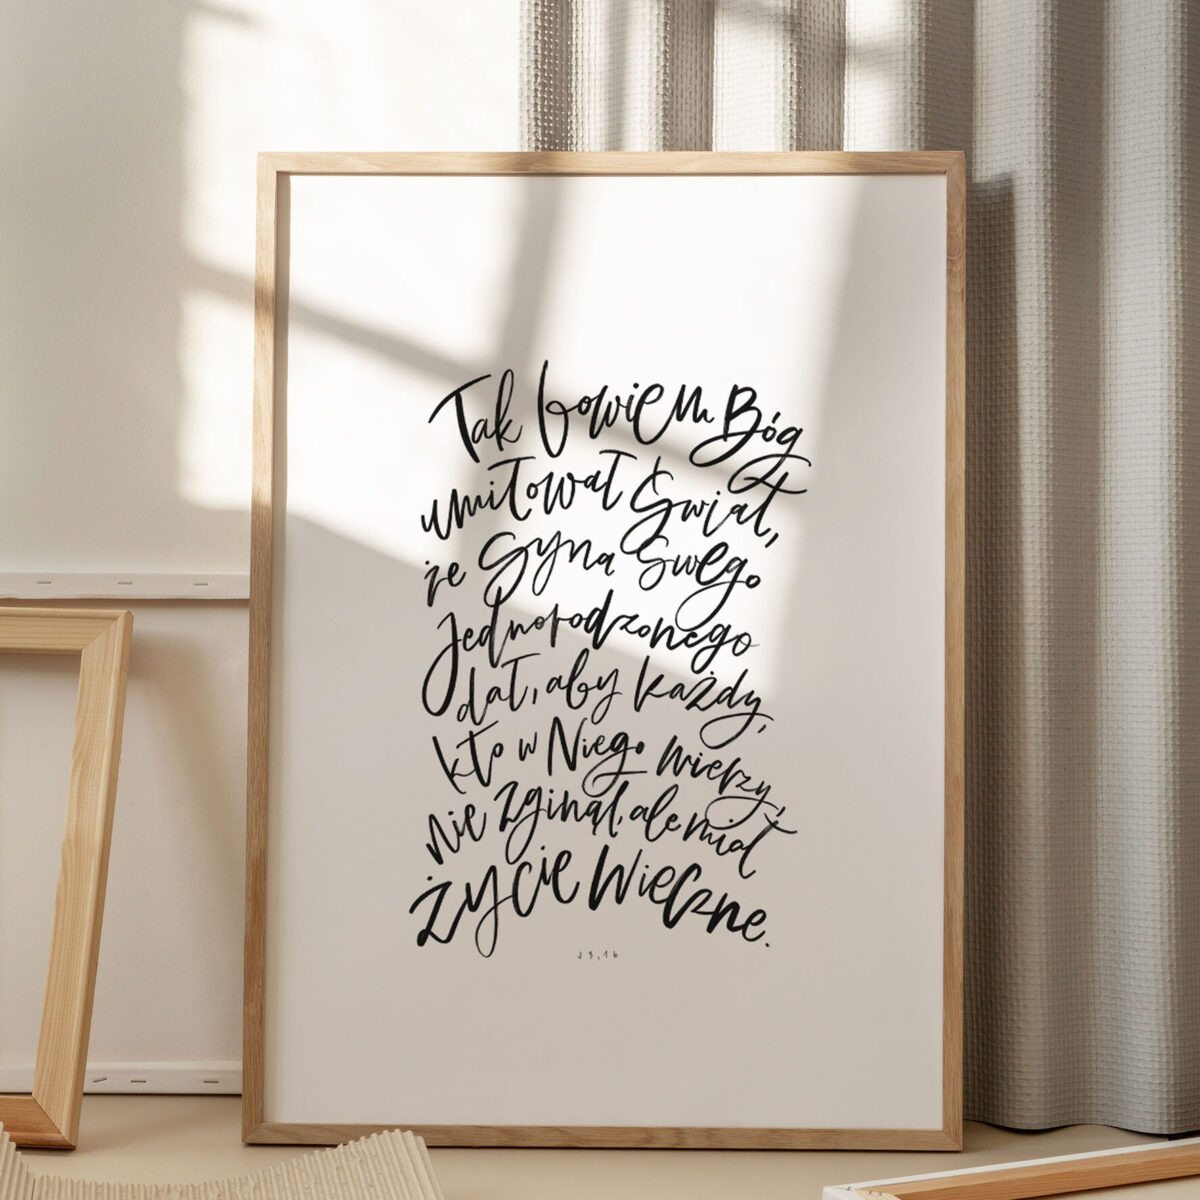 Tak bowiem Bóg
umiłował świat,
że Syna Swego
Jednorodzonego
dał, aby każdy,
kto w Niego wierzy,
nie zginął, ale miał
życie wieczne.
J 3,16